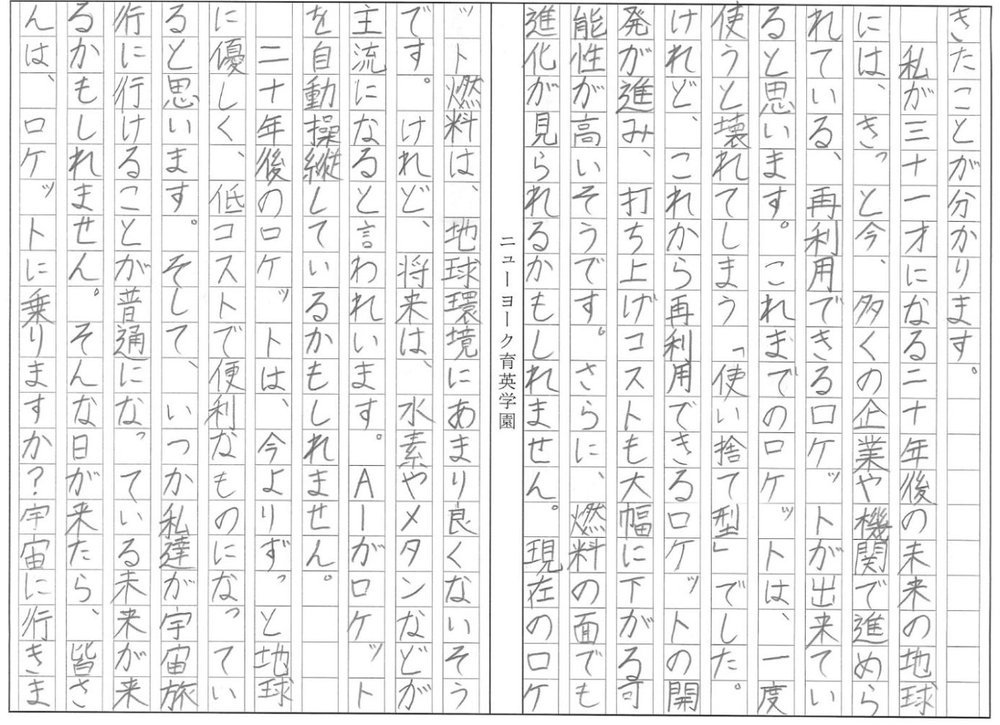 きたことが分かります。
　私が三十一才になる二十年後の未来の地球
には、きっと今、多くの企業や機関で進めら
れている、再利用できるロケットが出来てい
ると思います。これまでのロケットは、一度
使うと壊れてしまう「使い捨て型」でした。
けれど、これから再利用できるロケットの開
発が進み、打ち上げコストも大幅に下がる可
能性が高いそうです。さらに、燃料の面でも
進化が見られるかもしれません。現在のロケ
ニューヨーク育英学園
ット燃料は、地球環境にあまり良くないそう
です。けれど、将来は、水素やメタンなどが
主流になると言われいます。AIがロケット
を自動操縦しているかもしれません。
　二十年後のロケットは、今よりずっと地球
に優しく、低コストで便利なものになってい
ると思います。そして、いつか私達が宇宙旅
行に行けることが普通になっている未来が来
るかもしれません。そんな日が来たら、皆さ
んは、ロケットに乗りますか？宇宙に行きま